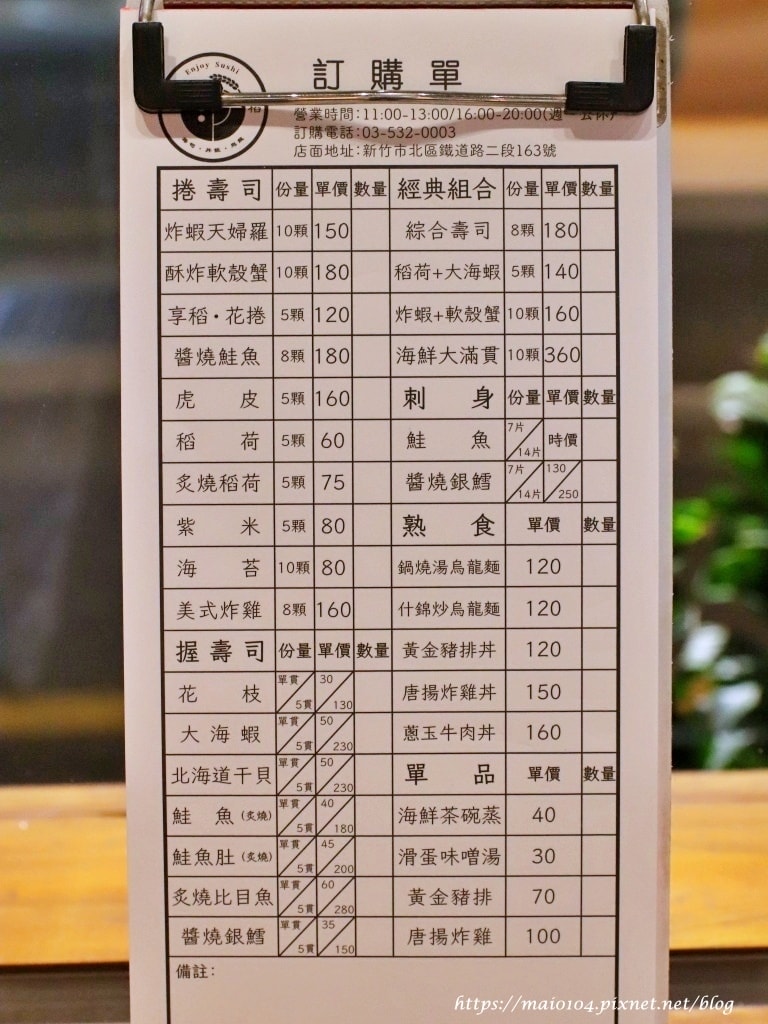 Enjoy Sushi
訂購單
營業時間：11:00-13:00/16:00-20:00(週一公休)
訂購電話：03-532-0003
店面地址：新竹市北區鐵道路二段163號
捲壽司 份量 單價 數量 經典組合 份量 單價 數量
炸蝦天婦羅 10顆 150 綜合壽司 8顆 180
酥炸軟殼蟹 10顆 180 稻荷+大海蝦 5顆 140
享稻・花捲 5顆 120 炸蝦+軟殼蟹 10顆 160
醬燒鮭魚 8顆 180 海鮮大滿貫 10顆 360
虎皮 5顆 160 刺身 份量 單價 數量
稻荷 5顆 60 鮭魚 7片/14片 時價
炙燒稻荷 5顆 75 醬燒銀鱈 7片/14片 130/250
紫米 5顆 80 熟食 單價 數量
海苔 10顆 80 鍋燒湯烏龍麵 120
美式炸雞 8顆 160 什錦炒烏龍麵 120
握壽司 份量 單價 數量 黃金豬排丼 120
花枝 單貫/5貫 30/130 唐揚炸雞丼 150
大海蝦 單貫/5貫 50/230 蔥玉牛肉丼 160
北海道干貝 單貫/5貫 50/230 單品 單價 數量
鮭魚(炙燒) 單貫/5貫 40/180 海鮮茶碗蒸 40
鮭魚肚(炙燒) 單貫/5貫 45/200 滑蛋味噌湯 30
炙燒比目魚 單貫/5貫 60/280 黃金豬排 70
醬燒銀鱈 單貫/5貫 35/150 唐揚炸雞 100
備註：
https://maio104.pixnet.net/blog